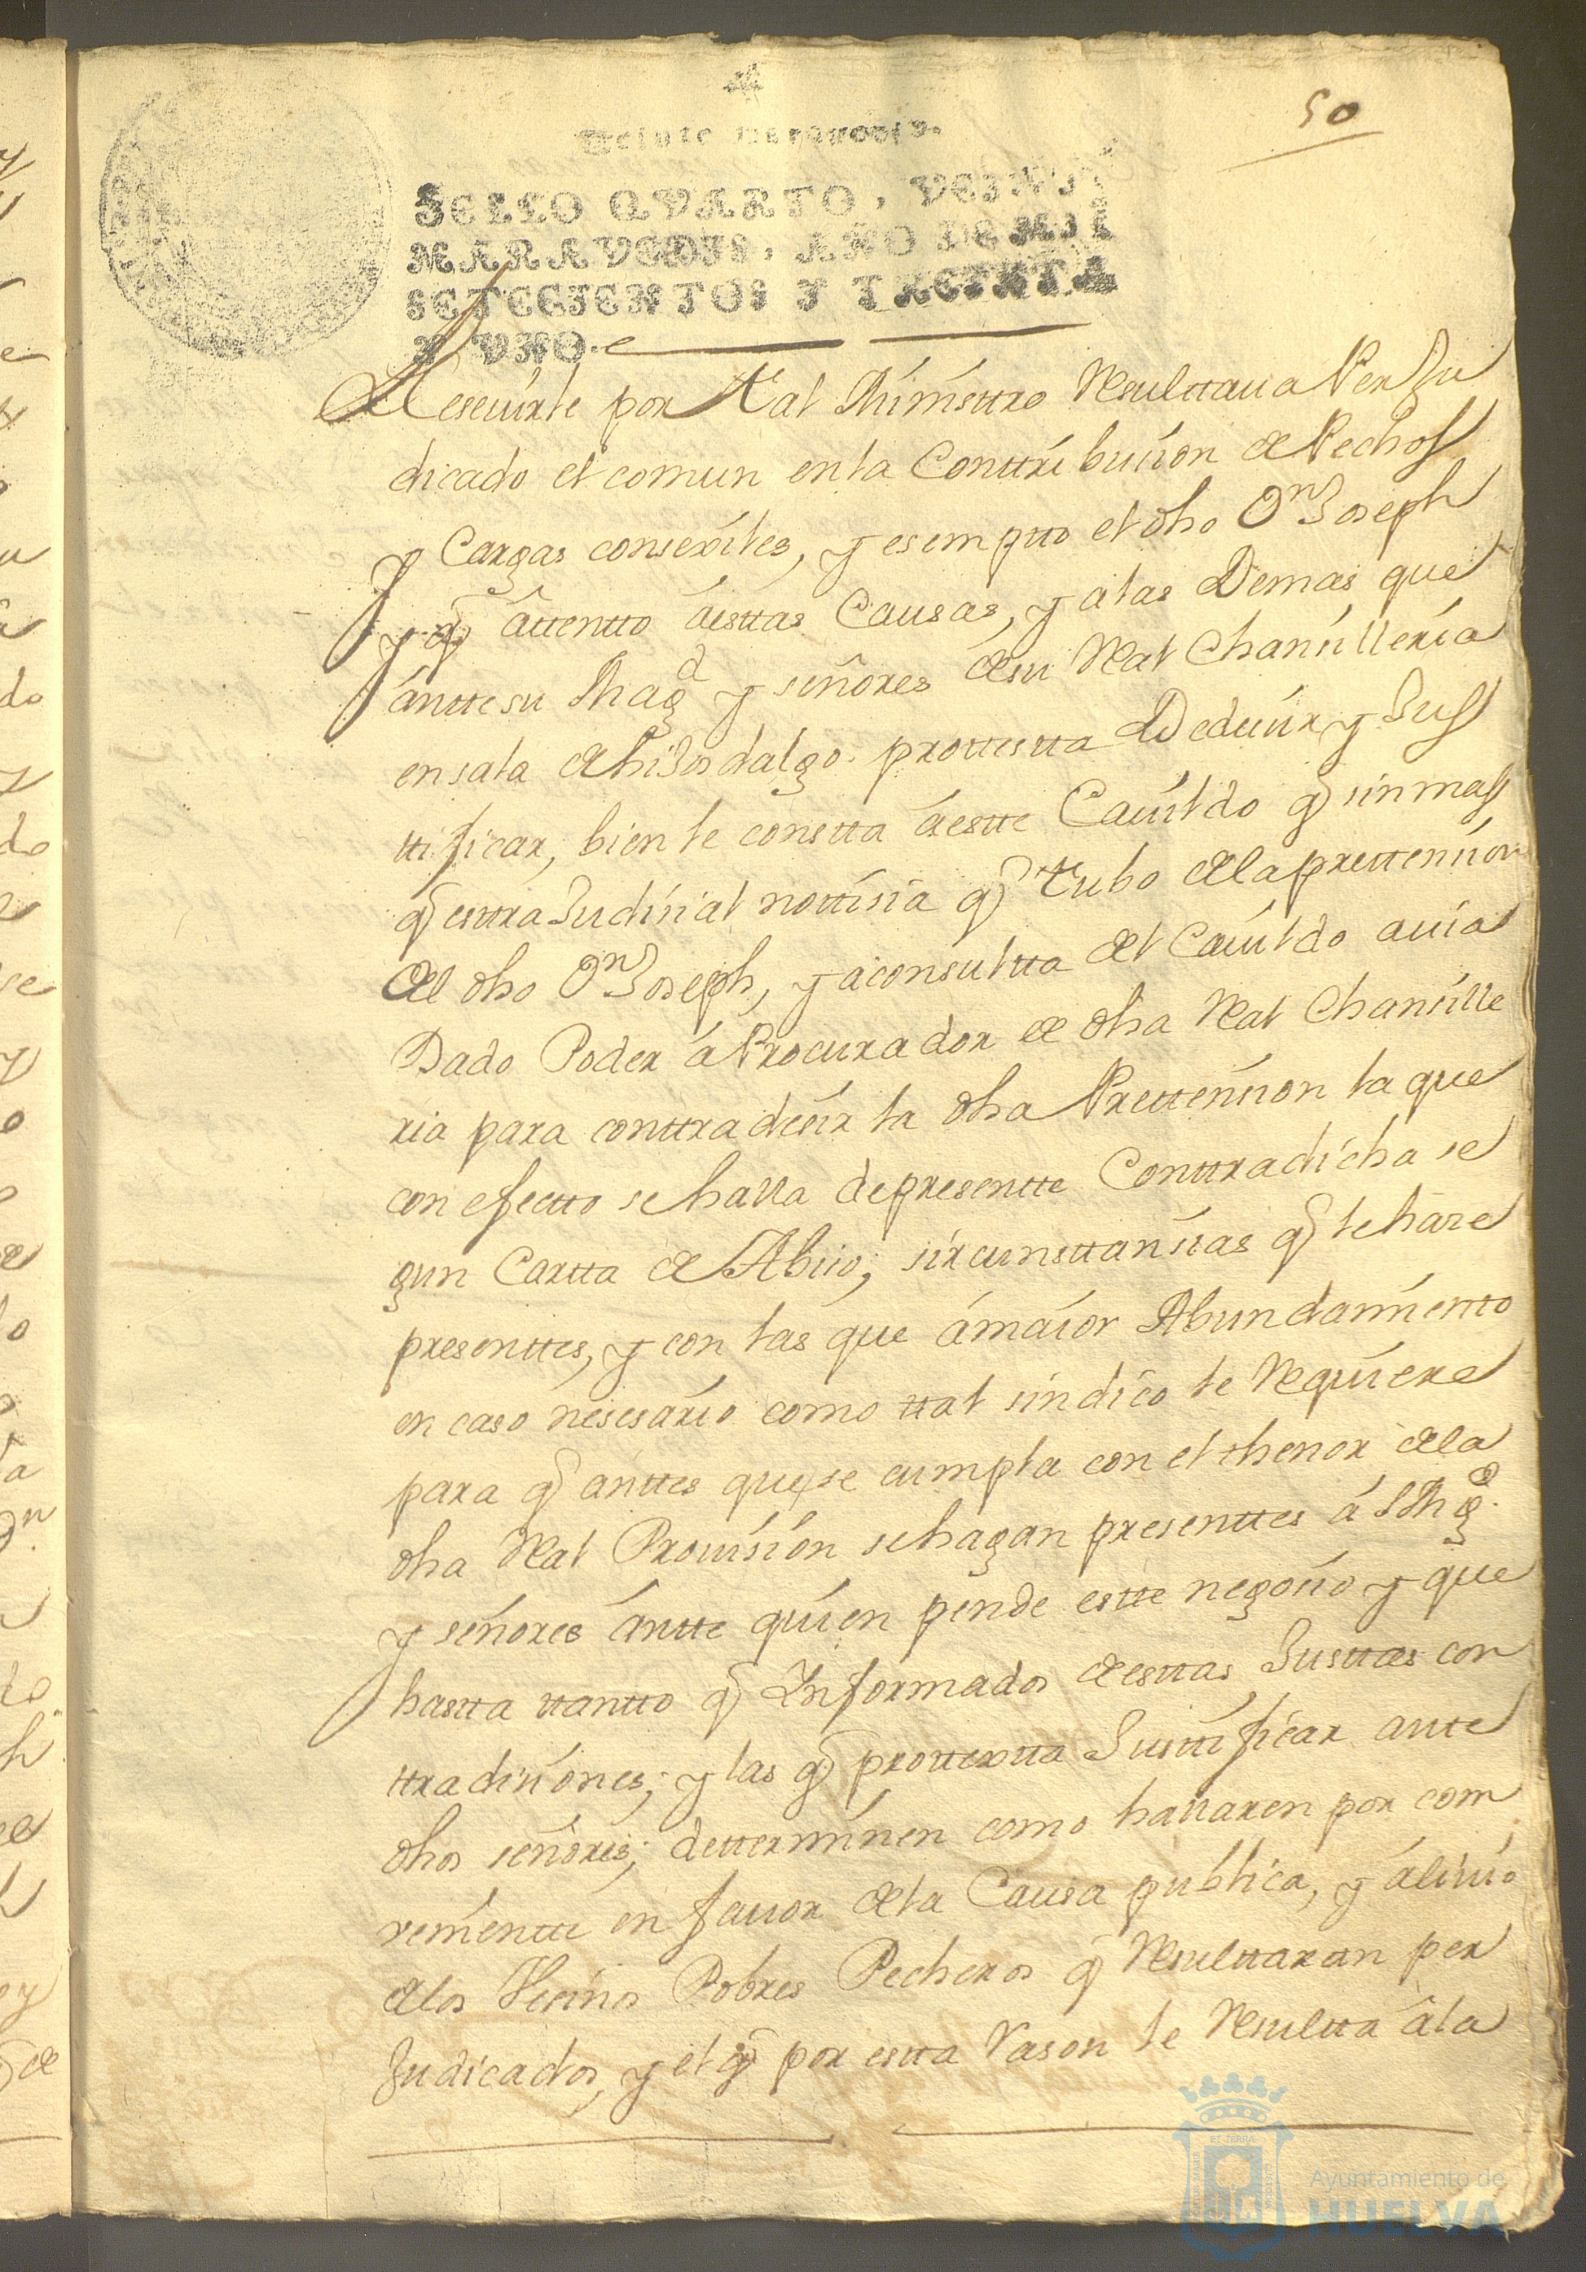 50
Veinte maravedis.
SELLO QVARTO, VEINTE
MARAVEDIS, AÑO DE MIL
SETECIENTOS Y TREINTA
Y VNO.
por tal Ministro Resulttaua Perju
dicado el comun en la Conttribucion de Pechos
y Cargas consexiles, y esempto el dho Dn Joseph
y q attentto áesttas Causas, y alas Demas que
ántte su Magd y señores de su Real Chansilleria
en sala de hijosdalgo prottestta Deducir y Jus
ttificar, bien le constta áestte Cauildo q sin mas
q esttraJudisial nottisia q tubo de la prettencion
del dho Dn Joseph, y áconsultta del Cauildo auia
Dado Poder á Procurador de dha Real Chansille
ria para conttradecir la dha Prettencion la que
con efectto se halla de presentte Conttradicha se
gun Cartta de Abiso; sircunsttansias q le hase
presenttes, y con las que ámaior Abundamiento
en caso nesesario como ttal sindico le Requiere
para q anttes que se cumpla con el thenor de la
dha Real Prouision se hagan presenttes á S Mgd.
y señores ántte quien pende estte negosio y que
hastta ttantto q Informados de esttas Justtas con
ttradiciones; y las q prottextta Justtificar ante
dhos señores; determinen como hallaren por com
benientte en fauor de la Causa publica, y áliuio
de los Vesinos Pobres Pecheros q Resulttaran per
Judicados, y el q por estta Rason le Resultta á la
Ayuntamiento de
HUELVA